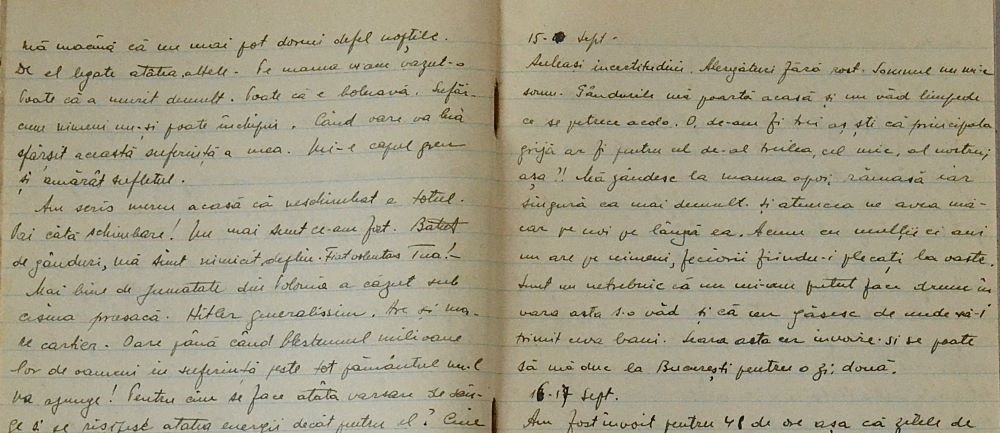 mă macină că nu mai pot dormi defel nopțile.
De el legate atâtea altele. Pe mama n-am văzut-o
Poate că a murit demult. Poate că e bolnavă. Sufăr
cum nimeni nu-și poate închipui. Când oare va lua
sfârșit această suferință a mea. Mi-e capul greu
și amărât sufletul.
Am scris numa acasă că neschimbat e totul.
Vai câtă schimbare! Nu mai sunt ce-am fost. Bătut
de gânduri, mă sunt nimicit deplin. Fiat voluntas Tua!-
Mai bine de jumătate din Polonia a căzut sub
cisma prusacă. Hitler generalissim. Are și ma-
re cartier. Oare până când blestemul milioane
lor de oameni în suferință peste tot pământul nu-l
va ajunge! Pentru cine se face atâta varsare de sân-
ge și se risipesc atâtea energii decât pentru el? Cine
15- Sept.
Aceleași incertitudini. Alergături fără rost. Somnul nu mi-e
somn. Gândurile mă poartă acasă și nu văd limpede
ce se petrece acolo. O, de-am fi trei aș ști că principala
grijă ar fi pentru cel de-al treilea, cel mic, al nostru,
așa?! Mă gândesc la mama apoi, rămasă iar
singură ca mai demult. Și atuncea ne avea mă-
car pe noi pe lângă ea. Acum cu mulții ei ani
nu are pe nimeni, feciorii fiindu-i plecați la oaste.
Sunt un netrebnic că nu mi-am putut face drum în
vara asta s-o văd și că nu găsesc de unde să-i
trimit ceva bani. Seara asta cer învoire și se poate
să mă duc la București pentru o zi, două.
16-17 Sept.
Am fost învoit pentru 48 de ore așa că zilele de